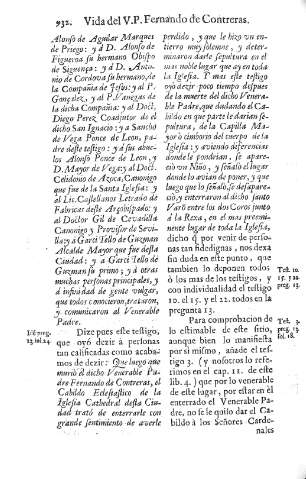 932. Vida del V.P. Fernando de Contreras.
Alonso de Aguilar Marques
de Priego: y à D. Alonso de
Figueroa su hermano Obispo
de Siguença: y à D. Anto-
nio de Cordova su hermano, de
la Compañia de Jesus: y al P.
Gonçalez, y al P. Vanegas de
la dicha Compañia; y al Doct.
Diego Perez Coadjutor de el
dicho San Ignacio: y à Sancho
de Vega Ponce de Leon, pa-
dre deste testigo: y à sus abue-
los Alonso Ponce de Leon, y
D. Mayor de Vega; y al Doct.
Celidonio de Azoca, Canonigo
que fue de la Santa Iglesia: y
al Lic. Castellanos Letrado de
Fabricas deste Arçobispado: y
al Doctor Gil de Cevadilla
Canonigo y Provisor de Sevi-
lla: y à Garci Tello de Guzman
Alcalde Mayor que fue desta
Ciudad: y à Garci Tello de
Guzman su primo; y à otras
muchas personas principales, y à
infinidad de gente vulgar,
que todos conocieron, trataron,
y comunicaron al Venerable
Padre.
Dize pues este testigo,
que oyò dezir à personas
tan calificadas como acaba-
mos de dezir: Que luego que
murió el dicho Venerable Pa-
dre Fernando de Contreras, el
Cabildo Eclesiastico de la
Iglesia Cathedral desta Ciu-
dad tratò de enterrarle con
grande sentimiento de averle
13. fol. 24.
perdido, y que le hizo un en-
tierro muy solemne, y deter-
minaron darle sepultura en el
mas noble lugar que ay en toda
la Iglesia. Y mas este testigo
oyò dezir poco tiempo despues
de la muerte del dicho Venera-
ble Padre, que dudando el Ca-
bildo en que parte le darian se-
pultura, de la Capilla Ma-
yor ò cimborro del cuerpo de la
Iglesia; y aviendo diferencias
donde le pondrian, se apare-
ciò un Niño, y señalò el lugar
donde lo avian de poner, y que
luego que lo señalò, se desapare-
ciò y enterraron al dicho santo
Varon entre los dos Coros junto
à la Rexa, en el mas preemi-
nente lugar de toda la Iglesia,
dicho q̃ por venir de perso-
nas tan fidedignas, nos dexa
sin duda en este punto, que
tambien lo deponen todos
ò los mas de los testigos, y
con individualidad el testigo
10. el 15. y el 12. todos en la
pregunta 13.
Para comprobacion de
lo estimable de este sitio,
aunque bien lo manifiesta
por si mismo, añade el tes-
tigo 3. (y nosotros lo refe-
rimos en el cap. 11. de este
lib. 4.) que por lo venerable
de este lugar, por estar en él
enterrado el Venerable Pa-
dre, no se le quiso dar el Ca-
bildo à los Señores Carde-
nales
Test. 10.
15. y 12.
preg. 13.
Test. 3.
preg. 13.
fol. 18.